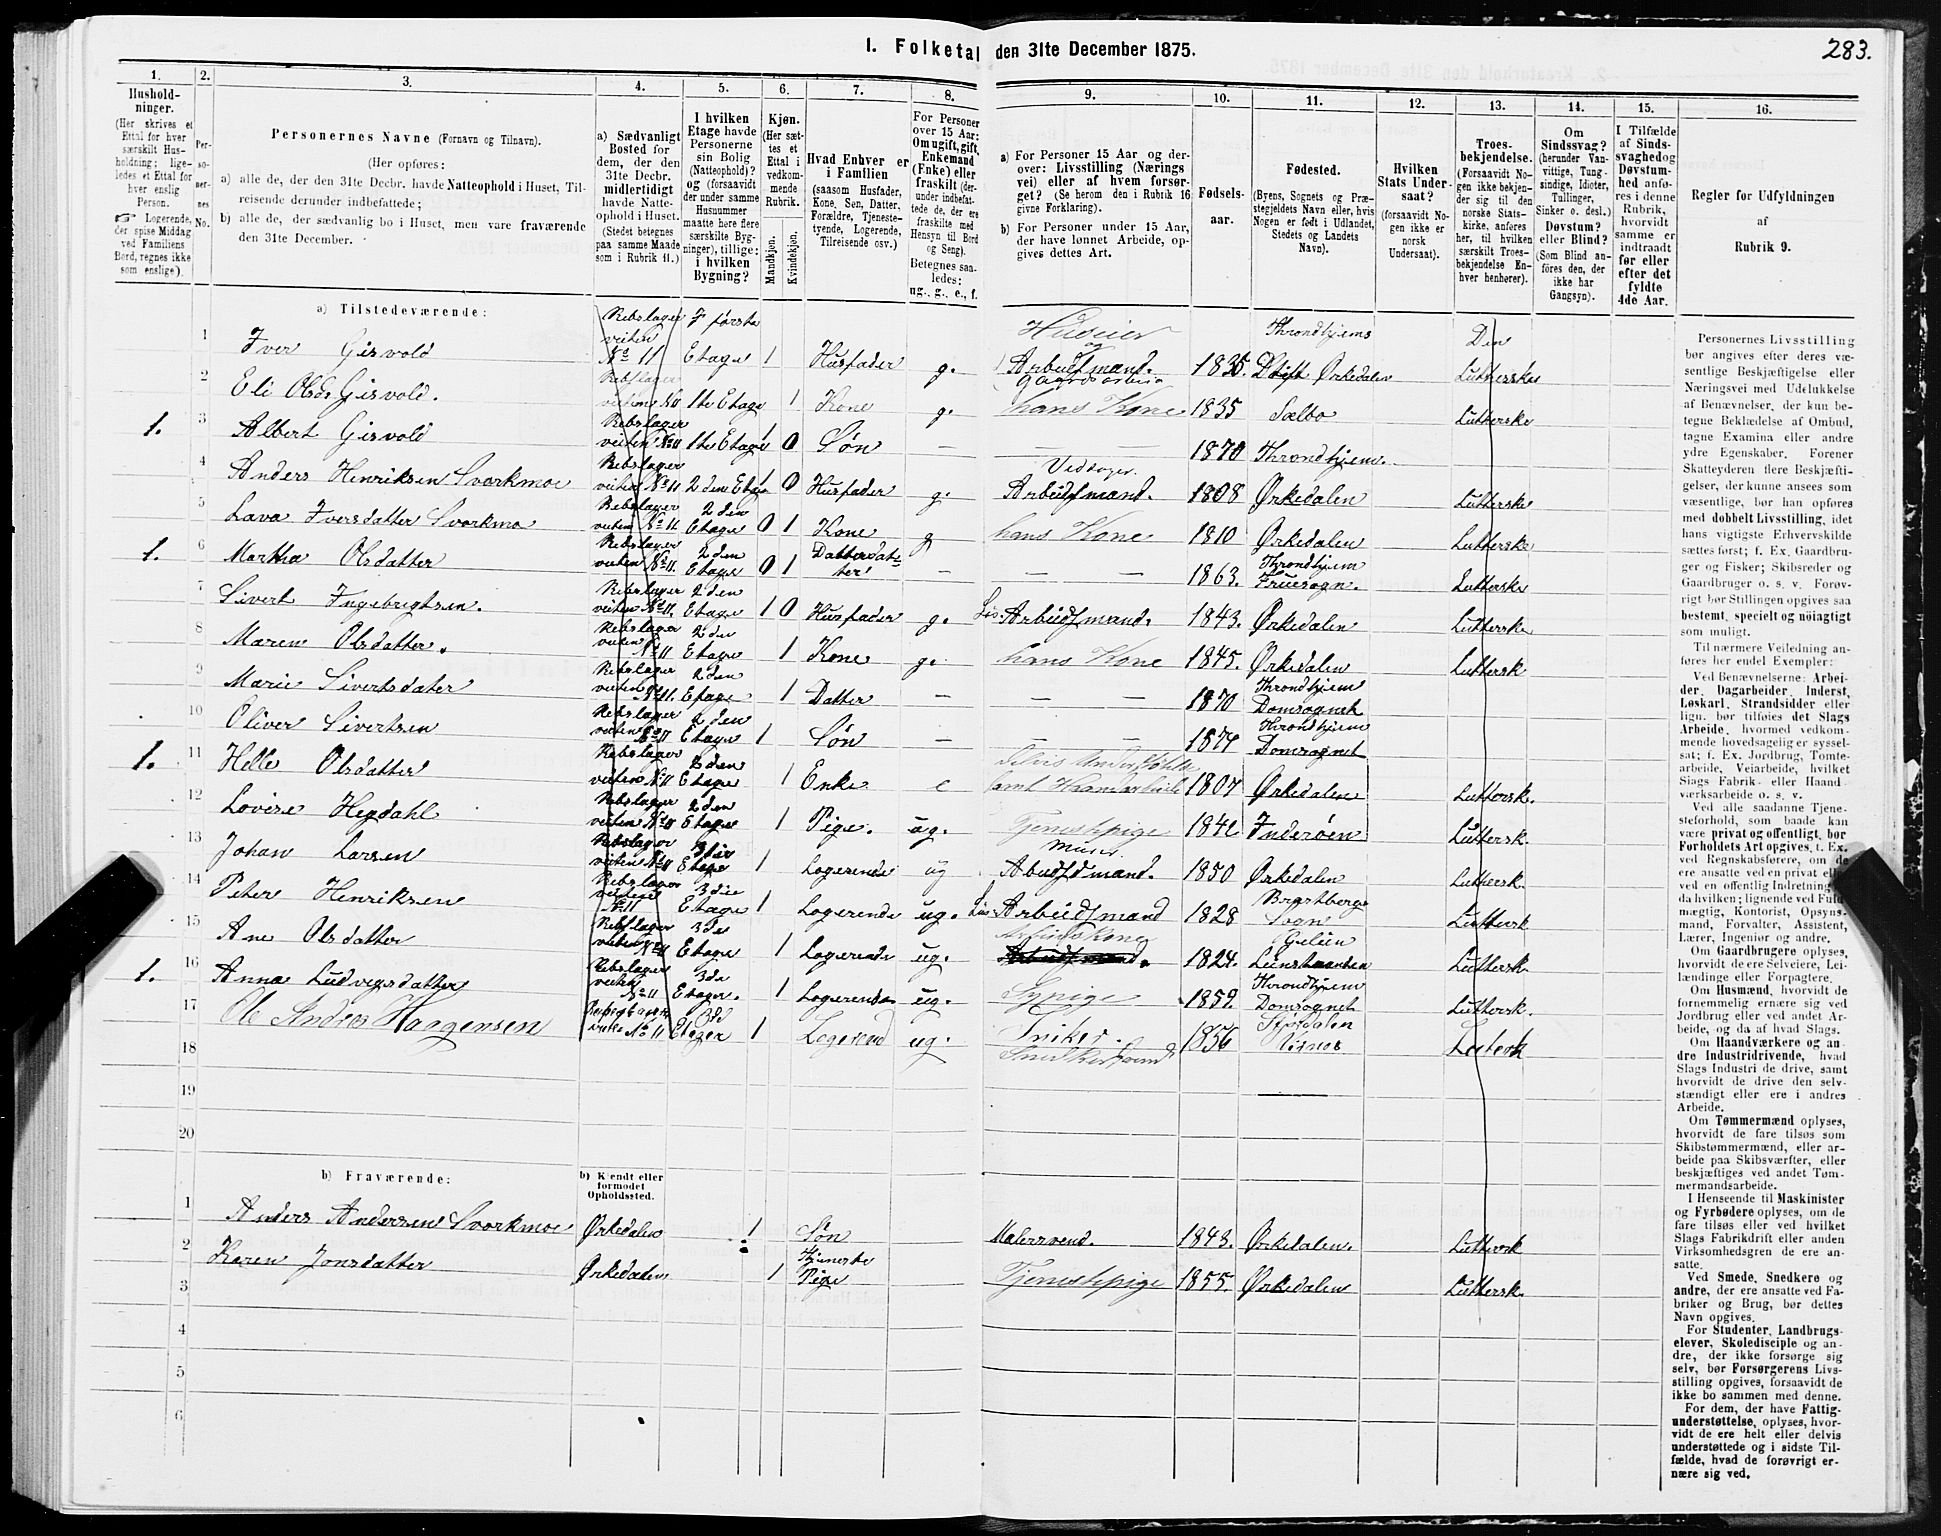 I. Folketal den 31te December 1875.
283.
1.
2.
3.
4.
5.
6.
7.
8.
9.
10.
11.
12.
13.
14.
15.
16.
Hushold-
ninger.
(Her skrives et
Ettal for hver
særskilt Hus-
holdning; lige-
ledes et Ettal for
hver enslig
Person.
☞ Logerende,
der spise Middag
ved Familiens
Bord, regnes ikke
som enslige).
Per-
so-
ner-
nes
No.
Personernes Navne (Fornavn og Tilnavn).
(Her opføres:
a) alle de, der den 31te Decbr. havde Natteophold i Huset, Til-
reisende derunder indbefattede;
b) alle de, der sædvanlig bo i Huset, men vare fraværende
den 31te December.
a) Sædvanligt
Bosted for
dem, der den
31te Decbr.
midlertidigt
havde Natte-
ophold i Huset.
(Stedet betegnes
paa samme Maade
som i Rubrik 11.)
I hvilken
Etage havde
Personerne
sin Bolig
(Natteophold)?
og (forsaavidt
der under samme
Husnummer
maatte høre flere
særskilte Byg-
ninger), tillige:
i hvilken
Bygning?
Kjøn.
(Her sæt-
tes et
Ettal i
vedkom-
mende
Rubrik.
Mandkjøn.
Kvindekjøn.
Hvad Enhver er
i Familien
(saasom Husfader,
Kone, Søn, Datter,
Forældre, Tjeneste-
tyende, Logerende,
Tilreisende osv.)
For Personer
over 15 Aar:
Om ugift, gift,
Enkemand
(Enke) eller
fraskilt (der-
under indbefat-
tede de, der ere
fraskilte med
Hensyn til Bord
og Seng).
Betegnes saa-
ledes:
ug., g., e., f.
a) For Personer 15 Aar og der-
over: Livsstilling (Nærings
vei) eller af hvem forsør-
get? (Se herom den i Rubrik 16
givne Forklaring).
b) For Personer under 15 Aar,
der have lønnet Arbeide, op-
gives dettes Art.
Fødsels-
aar.
Fødested.
(Byens, Sognets og Præ-
stegjeldets Navn eller, hvis
Nogen er født i Udlandet,
Stedets og Landets
Navn).
Hvilken
Stats Under-
saat?
(forsaavidt No-
gen ikke er
norsk
Undersaat).
Troes-
bekjendelse.
(Forsaavidt No-
gen ikke bekjen-
der sig til den
norske Stats-
kirke, anføres
her, til hvilken
særskilt Troes-
bekjendelse En-
hver henhører).
Om
Sindssvag?
(herunder Van-
vittige, Tung-
sindige, Idioter,
Tullinger,
Sinker o. desl.)
Døvstum?
eller Blind?
(Som Blind an-
føres den, der
ikke har
Gangsyn).
I Tilfælde
af Sinds-
svaghed og
Døvstum-
hed anfø-
res i denne
Rubrik,
hvorvidt
samme er
indtraadt
før eller
efter det
fyldte
4de Aar.
Regler for Udfyldningen
af
Rubrik 9.
a) Tilstedeværende:
1 Iver Gisvold Rebslager veiten No 11 I første Etage 1 Husfader g. Huseier og Arbeidsmand. Gaardsarbeide 1835. Throndhjems Stift Ørkedalen Den Lutherske
2 Eli Olsdr Gisvold. Rebslager veiten No 11 1te Etage 1 Kone g. hans Kone 1835 Sælbo Lutherske
1. 3 Albert Gisvold Rebslager veiten No 11 1te Etage 1 0 Søn — — 1870 Throndhjem.
4 Anders Henriksen Svorkmoe Rebslager veiten No 11 2den Etage 1 0 Husfader g. Vedsager. Arbeidsmand. 1808 Ørkedalen Lutherske
5 Lava Iversdatter Svorkmo Rebslager veiten No 11 2den Etage 0 1 Kone g hans Kone 1810 Ørkedalen Lutherske
1. 6 Martha Olsdatter Rebslager veiten No 11. 2den Etage 0 1 Datterdatter — — — 1863. Throndhjem Fruesogn. Lutherske
7 Sivert Ingebrigtsen. Rebslager veiten No 11. 2den Etage 1 0 Husfader g. Arbeidsmand. 1843. Ørkedalen Lutherske
8 Maren Olsdatter. Rebslager veiten No 11 2den Etage 1 Kone g. hans Kone 1845. Ørkedalen Luthersk
9 Marie Sivertsdater Rebslager veiten No 11. 2den Etage 1 Datter — — — 1870 Throndhjem Domsognet
10 Oliver Sivertsen Rebslager veiten No 11 2den Etage 1 Søn — — — 1874 Throndhjem Domsognet
1. 11 Helle Olsdatter Rebslager veiten No 11 2den Etage 1 Enke e delvis Understøttet samt Haandarbeide 1807 Ørkedalen Luthersk.
12 Lovise Hegdahl Rebslager veiten No 11 2den Etage 1 Pige. ug. Tjenestepige 1842 Inderøen Luthersk.
13 Johan Larsen Rebslager veiten No 11 3die Etage 1 Logerende ug Murer. Arbeidsmand. 1850 Ørkedalen Luthersk.
14 Peter Henriksen Rebslager veiten No 11 3die Etage 1 Logerende ug. Arbeidsmand 1828 Sogn Luthersk
15 Ane Olsdatter Rebslager veiten No 11 3die Etage 1 Logerende ug. Arbeidskone 1824. Leinstranden Luthersk.
1. 16 Anna Ludvigsdatter Rebslager veiten No 11 3die Etage. 1 Logerende ug. Sypige 1859. Throndhjem Domsognet Luthersk.
17 Ole Andreas Haagensen No 11 3die Etagen 1 Logerend ug. Sniker. Snedkersvend 1856 Størdalen Luthersk
18
19
20
b) Fraværende:
b) Kjendt eller
formodet
Opholdssted.
1 Anders Andersen Svorkmoe Ørkedalen 1 Søn Malersvend. 1843. Ørkedalen. Luthersk
2 Karen Jonsdatter Ørkedalen 1 Tjeneste Pige Tjenestepige 1855. Ørkedalen Luthersk.
3
4
5
6
Personernes Livsstilling
bør angives efter deres væ-
sentlige Beskjæftigelse eller
Næringsvei med Udelukkelse
af Benævnelser, der kun be-
tegne Beklædelse af Ombud,
tagne Examina eller andre
ydre Egenskaber. Forener
Skatteyderen flere Beskjæfti-
gelser, der kunne ansees som
væsentlige, bør han opføres
med dobbelt Livsstilling, idet
hans vigtigste Erhvervskilde
sættes først; f. Ex. Gaardbru-
ger og Fisker; Skibsreder og
Gaardbruger o. s. v. Forøv-
rigt bør Stillingen opgives saa
bestemt, specielt og nøiagtigt
som muligt.
Til nærmere Veiledning an-
føres her endel Exempler:
Ved Benævnelserne: Arbei-
der, Dagarbeider, Inderst,
Løskarl, Strandsidder eller
lign. bør tilføies det Slags
Arbeide, hvormed vedkom-
mende hovedsagelig er syssel-
sat; f. Ex. Jordbrug, Tomte-
arbeide, Veiarbeide, hvilket
Slags Fabrik- eller Haand
værksarbeide o. s. v.
Ved alle saadanne Tjene-
steforhold, som baade kan
være privat og offentligt, bør
Forholdets Art opgives, f. Ex.
ved Regnskabsførere, om de
ere ansatte ved en privat eller
ved en offentlig Indretning,
da hvilken; lignende ved Fuld
mægtig, Kontorist, Opsyns-
mand, Forvalter, Assistent,
Lærer, Ingeniør og andre.
Om Gaardbrugere opgives,
hvorvidt de ere Selveiere, Lei-
lændinge eller Forpagtere.
Om Husmænd, hvorvidt de
fornemmelig ernære sig ved
Jordbrug eller ved andet Ar-
beide, og da af hvad Slags.
Om Haandværkere og an-
dre Industridrivende, hvad
Slags Industri de drive, samt
hvorvidt de drive den selv-
stændigt eller ere i andres
Arbeide.
Om Tømmermænd oplyses,
hvorvidt de fare tilsøs som
Skibstømmermænd, eller ar-
beide paa Skibsværfter, eller
beskjæftiges ved andet Tøm-
mermandsarbeide.
I Henseende til Maskinister
og Fyrbødere oplyses, om de
fare tilsøs eller ved hvilket
Slags Fabrikdrift eller anden
Virksomhedsgren de ere an-
satte.
Ved Smede, Snedkere og
andre, der ere ansatte ved Fa-
briker og Brug, bør dettes
Navn opgives.
For Studenter, Landbrugs-
elever, Skoledisciple og an-
dre, der ikke forsørge sig
selv, bør Forsørgerens Livs-
stilling opgives, forsaavidt de
ikke bo sammen med denne.
For dem, der have Fattig-
understøttelse, oplyses, hvor-
vidt de ere helt eller delvis
understøttede og i sidste Til-
fælde, hvad de forøvrigt er-
nære sig ved.